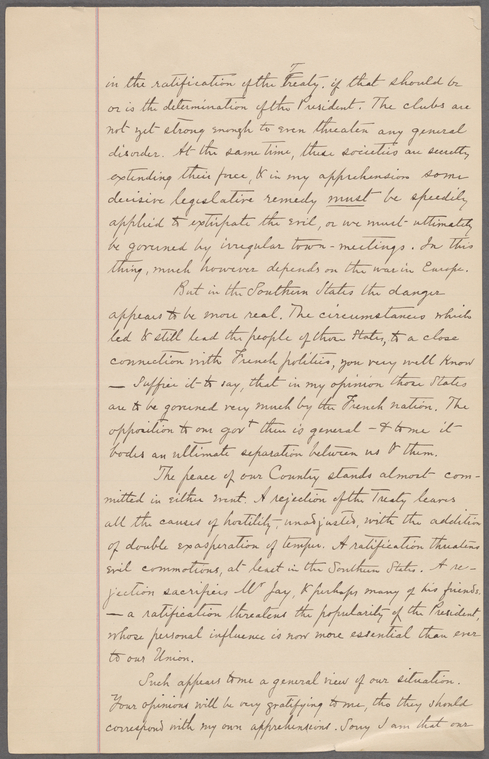 in the ratification of the Treaty. if that should be
or is the determination of the President. The clubs are
not yet strong enough to even threaten any general
disorder. At the same time, these societies are secretly
extending their force, & in my apprehension some
decisive legislative remedy must be speedily
applied to extirpate the evil, or we must ultimately
be governed by irregular town-meetings. In this
thing, much however depends on the war in Europe.
But in the Southern States the danger
appears to be more real. The circumstances which
led & still lead the people of those States, to a close
connection with French politics, you very well know
— Suffice it to say, that in my opinion those States
are to be governed very much by the French nation. The
opposition to our govt there is general — & to me it
bodes an ultimate separation between us & them.
The peace of our Country stands almost com-
mitted in either event. A rejection of the Treaty leaves
all the causes of hostility, unadjusted, with the addition
of double exasperation of temper. A ratification threatens
evil commotions, at least in the Southern States. A re-
jection sacrifices Mr Jay, & perhaps many of his friends.
— a ratification threatens the popularity of the President,
whose personal influence is now more essential than ever
to our Union.
Such appears to me a general view of our situation.
Your opinions will be very gratifying to me, tho they should
correspond with my own apprehensions. Sorry I am that our